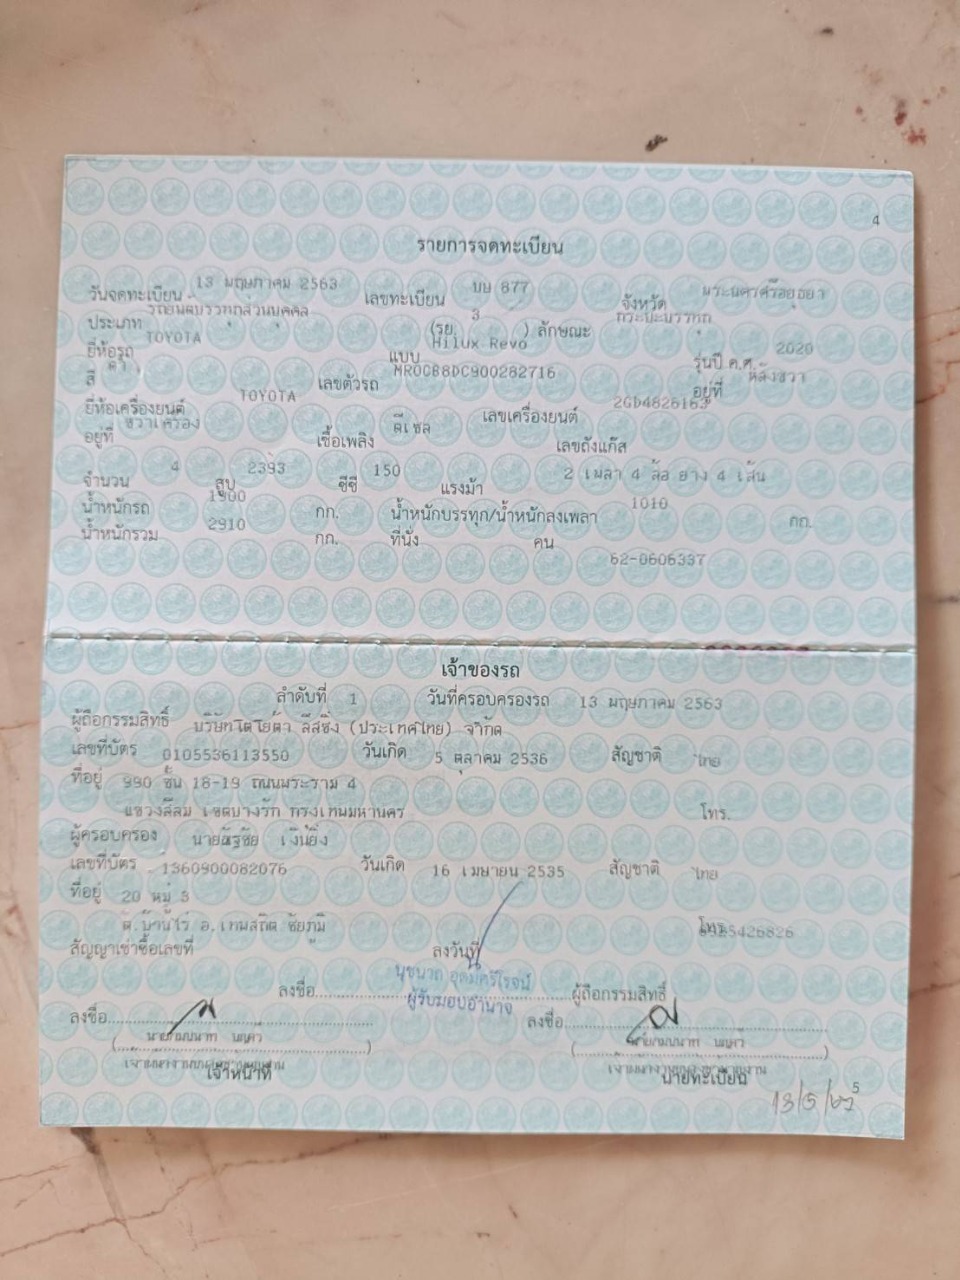 4
รายการจดทะเบียน
วันจดทะเบียน 13 พฤษภาคม 2563 เลขทะเบียน บษ 877 จังหวัด พระนครศรีอยุธยา
ประเภท รถยนต์บรรทุกส่วนบุคคล (รย. 3 ) ลักษณะ กระบะบรรทุก
ยี่ห้อรถ TOYOTA แบบ Hilux Revo รุ่นปี ค.ศ. 2020
สี ดำ เลขตัวรถ MR0CB8DC900282716 อยู่ที่ หลังขวา
ยี่ห้อเครื่องยนต์ TOYOTA เลขเครื่องยนต์ 2GD4826163
อยู่ที่ ขวาเครื่อง เชื้อเพลิง ดีเซล เลขถังแก๊ส
จำนวน 4 สูบ 2393 ซีซี 150 แรงม้า 2 เพลา 4 ล้อ ยาง 4 เส้น
น้ำหนักรถ 1900 กก. น้ำหนักบรรทุก/น้ำหนักลงเพลา 1010 กก.
น้ำหนักรวม 2910 กก. ที่นั่ง คน
62-0606337
เจ้าของรถ
ลำดับที่ 1 วันที่ครอบครองรถ 13 พฤษภาคม 2563
ผู้ถือกรรมสิทธิ์ บริษัทโตโยต้า ลีสซิ่ง (ประเทศไทย) จำกัด
เลขที่บัตร 0105536113550 วันเกิด 5 ตุลาคม 2536 สัญชาติ ไทย
ที่อยู่ 990 ชั้น 18-19 ถนนพระราม 4
แขวงสีลม เขตบางรัก กรุงเทพมหานคร โทร.
ผู้ครอบครอง นายณัฐชัย เงินยิ่ง
เลขที่บัตร 1360900082076 วันเกิด 16 เมษายน 2535 สัญชาติ ไทย
ที่อยู่ 20 หมู่ 3
ต.บ้านไร่ อ.เทพสถิต ชัยภูมิ โทร.
สัญญาเช่าซื้อเลขที่ ลงวันที่
ลงชื่อ นุชนาถ อุดมศรีโรจน์ ผู้ถือกรรมสิทธิ์
ผู้รับมอบอำนาจ
ลงชื่อ ลงชื่อ
เจ้าหน้าที่ นายทะเบียน
13/5/63
5